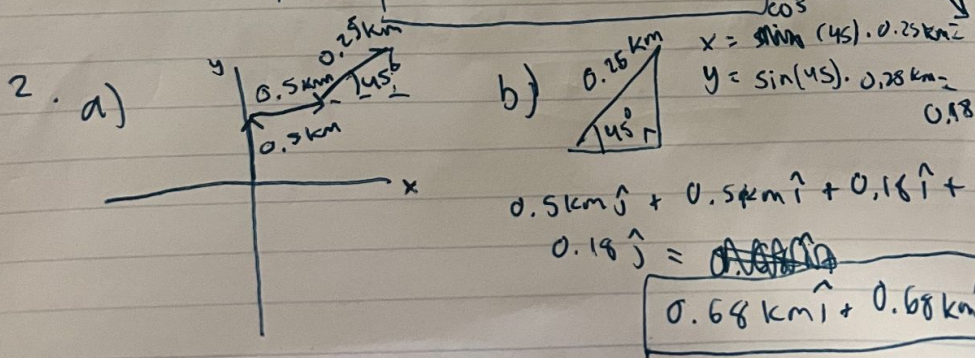 cos
2. a)
y
0.25km
0.5km
45°
0.5km
x
b)
0.25km
45°
x = (45) · 0.25km =
y = sin(45) · 0.28km =
0.18
0.5km ĵ + 0.5km î + 0.18 î +
0.18 ĵ =
0.68 km î + 0.68 km